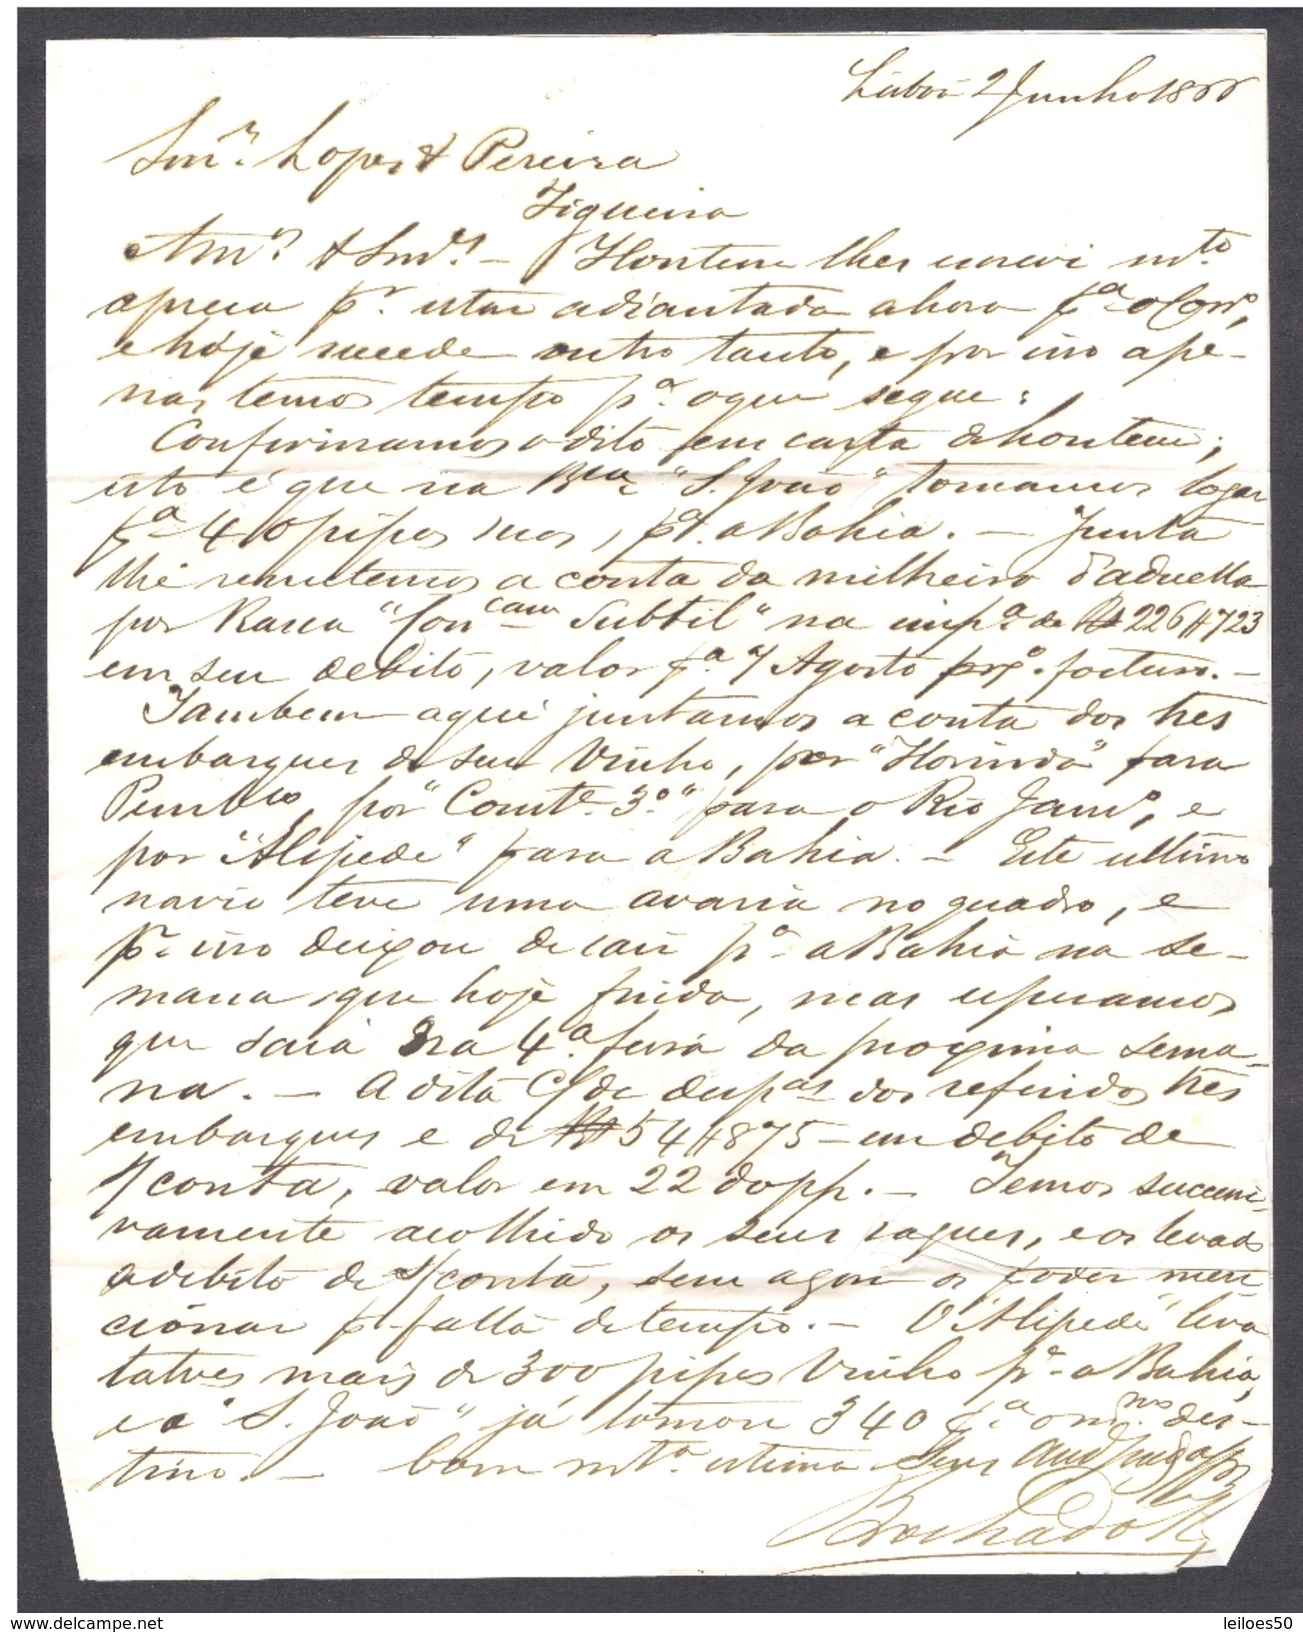 Lisboa 2 Junho 1866
Snrs. Lopes & Pereira
Figueira
Amos. & Snrs. – Hontem lhes escrevi mto.
apreça pr. estar adiantada a hora pa. o Corro.,
e hoje succede outro tanto, e por isso ape-
nas temos tempo pa. o que segue:
Confirmamos o dito em carta de hontem;
isto é que na Bca. "S. João" tomamos logar
pa. 40 pipas suas, pa. a Bahia. – Junta
lhe remettemos a conta da milheiro d'aduella
por Rasca "Concam. Subtil" na impa. de R# 226#723
em seu debito, valor pa. 7 Agosto prxo. futuro. –
Tambem aqui juntamos a conta dos tres
embarques de seu Vinho, por "Florinda" para
Pernbco, por "Comte. 3º" para o Rio Janro, e
por "Alipede" para a Bahia. – Este ultimo
navio teve uma avaria no quadro, e
pr. isso deixou de sair pa. a Bahia na se-
mana que hoje finda, mas esperamos
que saia na 4ª. feira da proxima sema-
na. – A dita C/ de despas dos referidos tres
embarques e de R# 54#875 – em debito de
s/ conta, valor em 22 do pp. – Temos successi-
vamente acolhido os seus saques, e os levado
a debito de s/ conta, sem agora os poder men-
cionar pr. falta de tempo. – O "Alipede" leva
talvez mais de 300 pipas Vinho pa. a Bahia,
e o "S. João" já tomou 340 pa. o mmo. des-
tino. – Com mta. estima Seus
Machado
delcampe.net
leiloes50